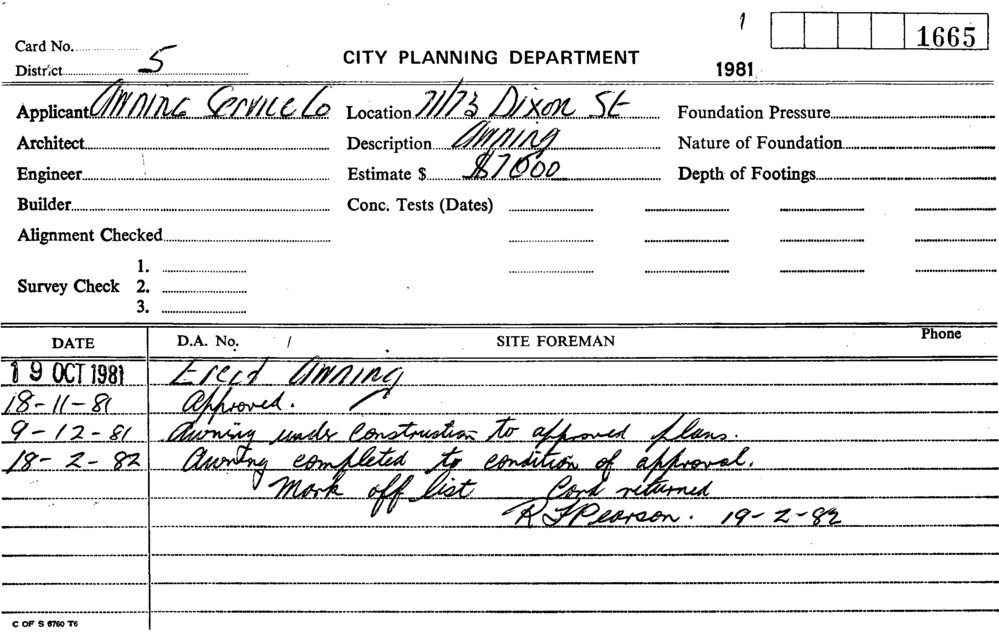 1 1665
Card No.
District 5
CITY PLANNING DEPARTMENT
1981
Applicant Awning Service Co Location 71/73 Dixon St Foundation Pressure
Architect Description Awning Nature of Foundation
Engineer Estimate $ $7000 Depth of Footings
Builder Conc. Tests (Dates)
Alignment Checked
1.
Survey Check 2.
3.
DATE D.A. No. / SITE FOREMAN Phone
19 OCT 1981 Erect Awning
18-11-81 Approved.
9-12-81 Awning under construction to approved plans.
18-2-82 Awning completed to condition of approval.
Mark off list Card returned
R F Pearson. 19-2-82
C OF S 6760 T6